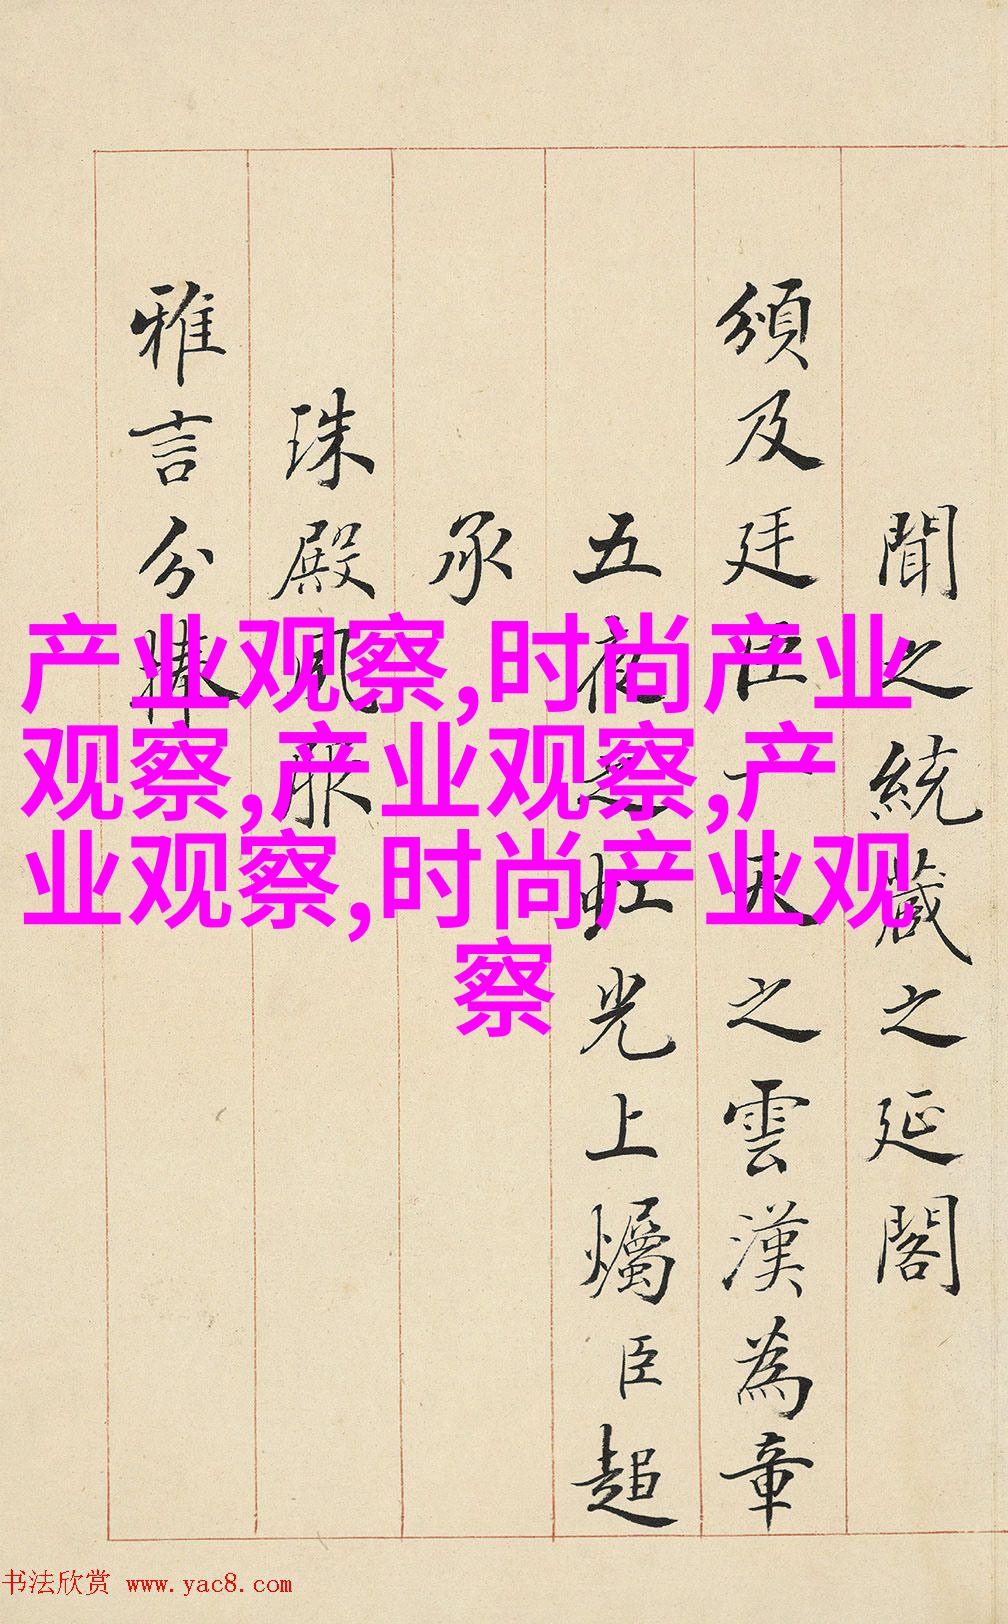 聞之統藏之延閣
頒及廷臣一天之雲漢為章
五夜虹光上燭臣趙
承
珠殿風服
雅言分捧
产业观察,时尚产业
观察,产业观察,产
业观察,时尚产业观
察
书法欣赏 www.yac8.com